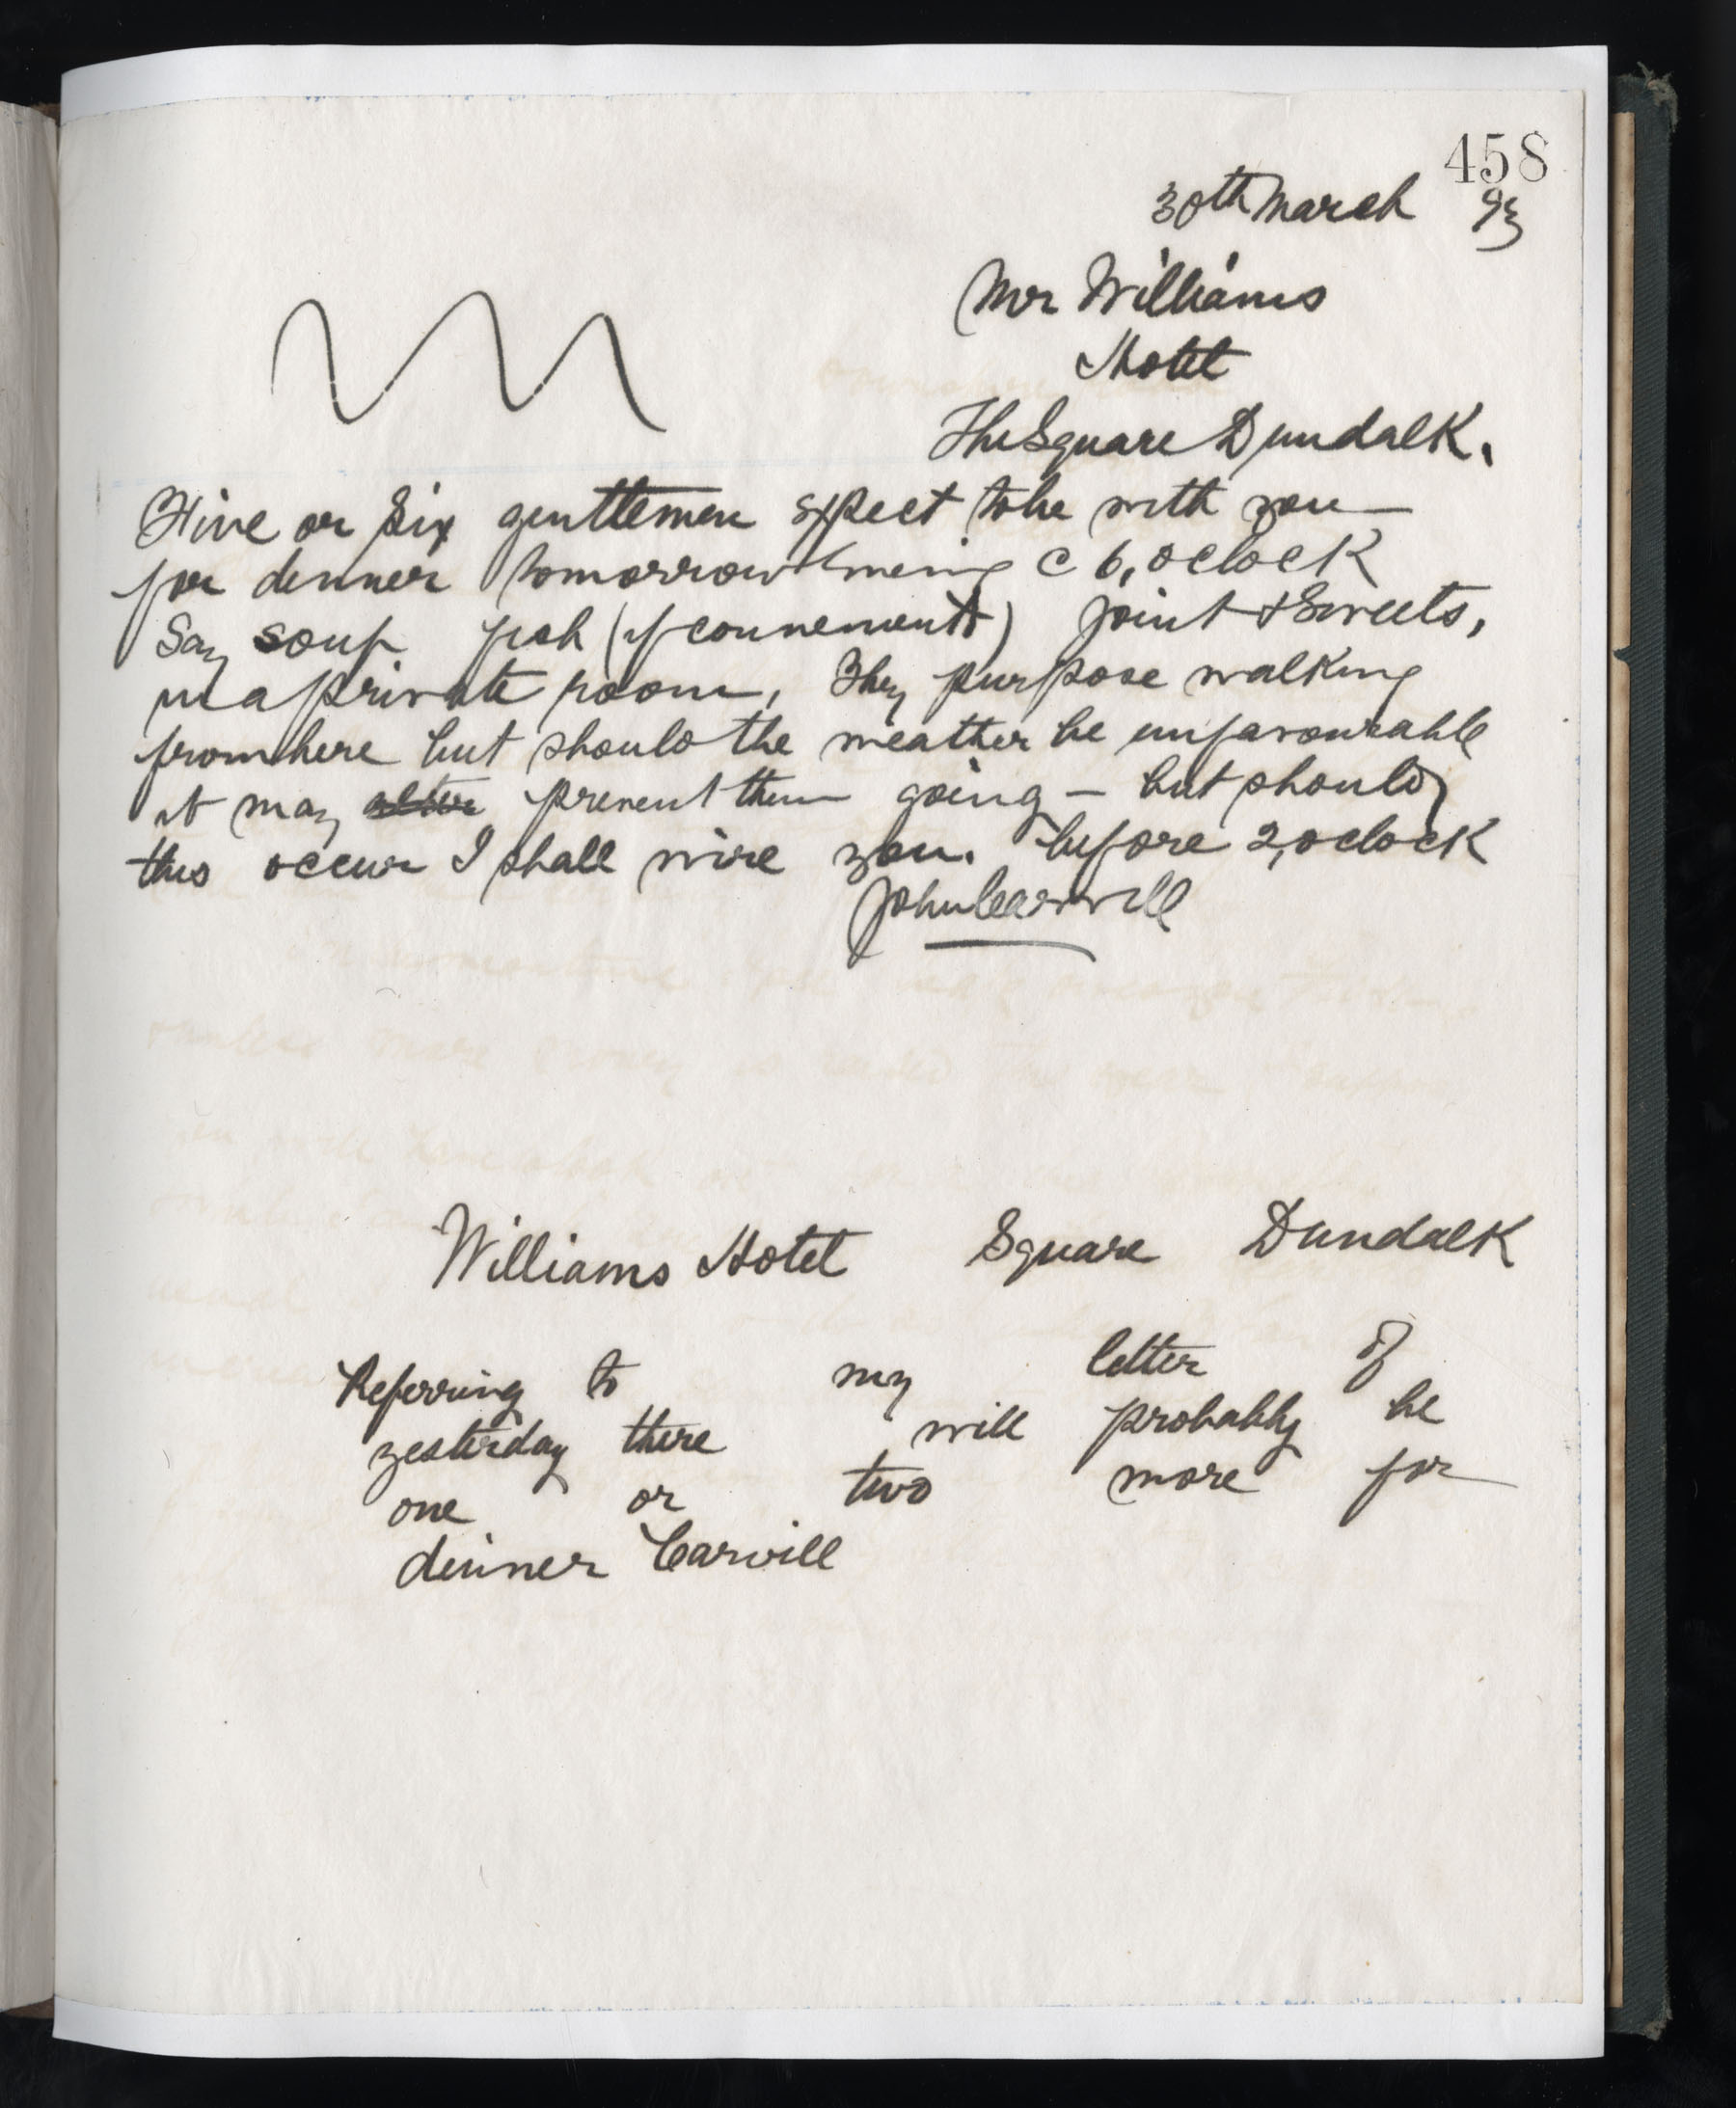 458
30th March 93
Mr Williams
Hotel
The Square Dundalk.
Five or Six gentlemen expect to be with you
for dinner tomorrow evening @ 6, oclock
Say soup fish (if convenient) joint & Sweets,
in a private room, They purpose walking
from here but should the weather be unfavourable
it may alter prevent them going - but should
this occur I shall wire you. before 2, oclock
John Carvill
Williams Hotel Square Dundalk
Referring to my letter of
yesterday there will probably be
one or two more for
dinner Carvill